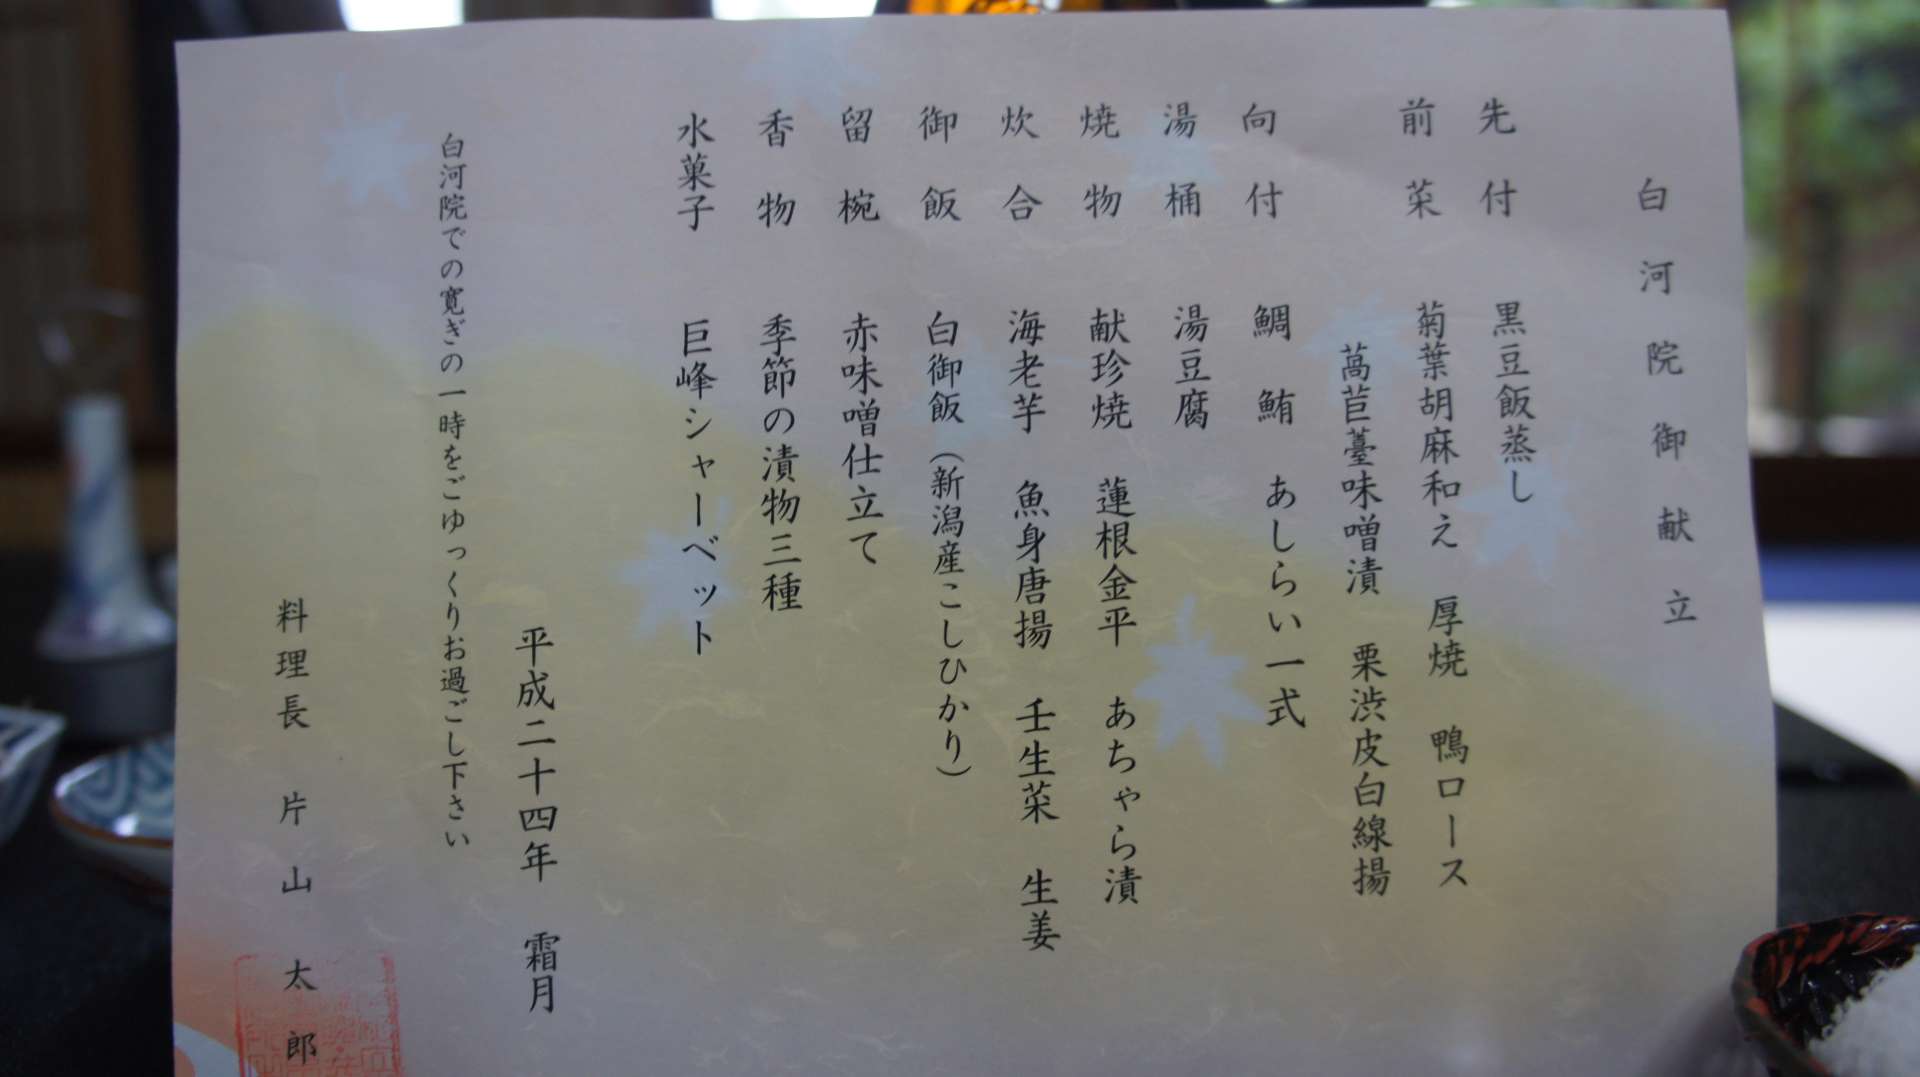 白河院御献立
先付 黒豆飯蒸し
前菜 菊葉胡麻和え 厚焼 鴨ロース
萵苣薹味噌漬 栗渋皮白線揚
向付 鯛 鮪 あしらい一式
湯桶 湯豆腐
焼物 献珍焼 蓮根金平 あちゃら漬
炊合 海老芋 魚身唐揚 壬生菜 生姜
御飯 白御飯(新潟産こしひかり)
留椀 赤味噌仕立て
香物 季節の漬物三種
水菓子 巨峰シャーベット
平成二十四年 霜月
白河院での寛ぎの一時をごゆっくりお過ごし下さい
料理長 片山太郎